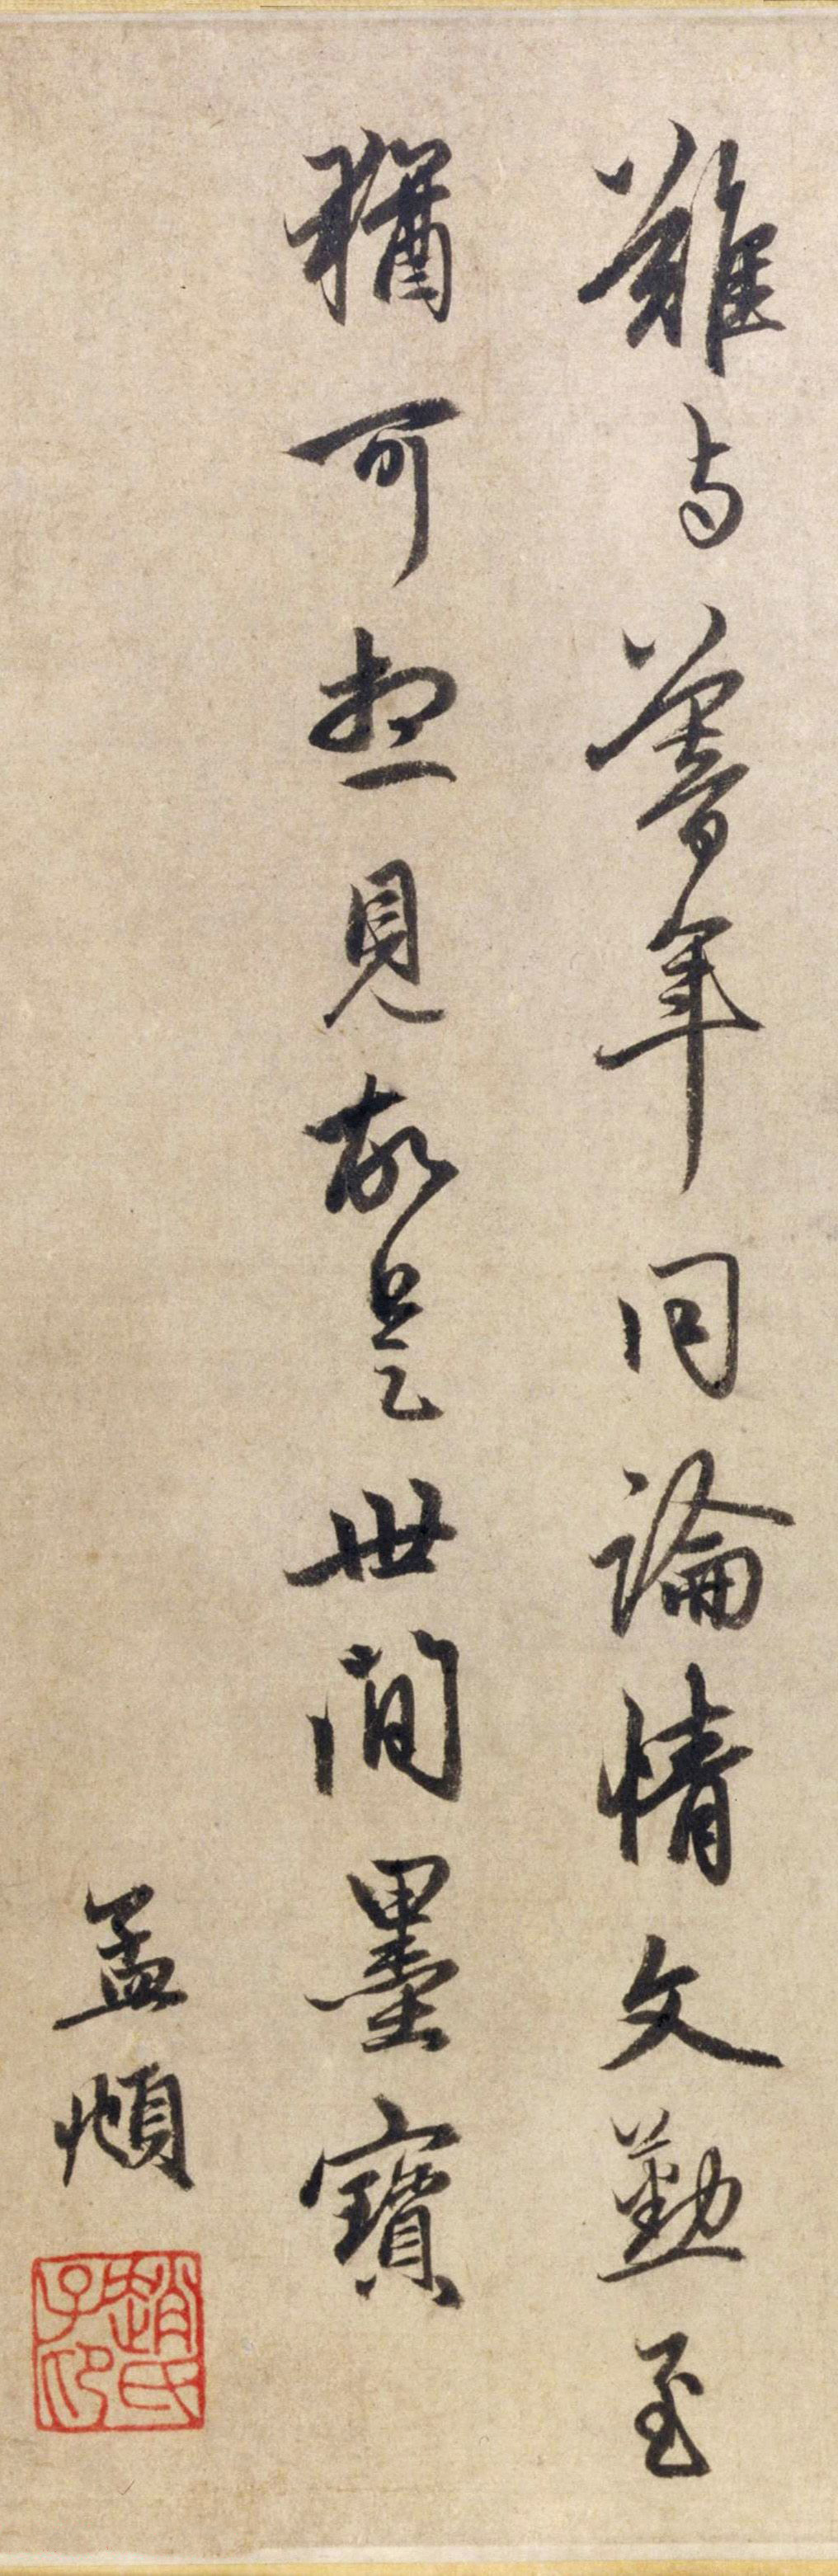 難与暮年同論情文懃至
猶可想見故是世間墨寶
孟頫
趙氏子昂